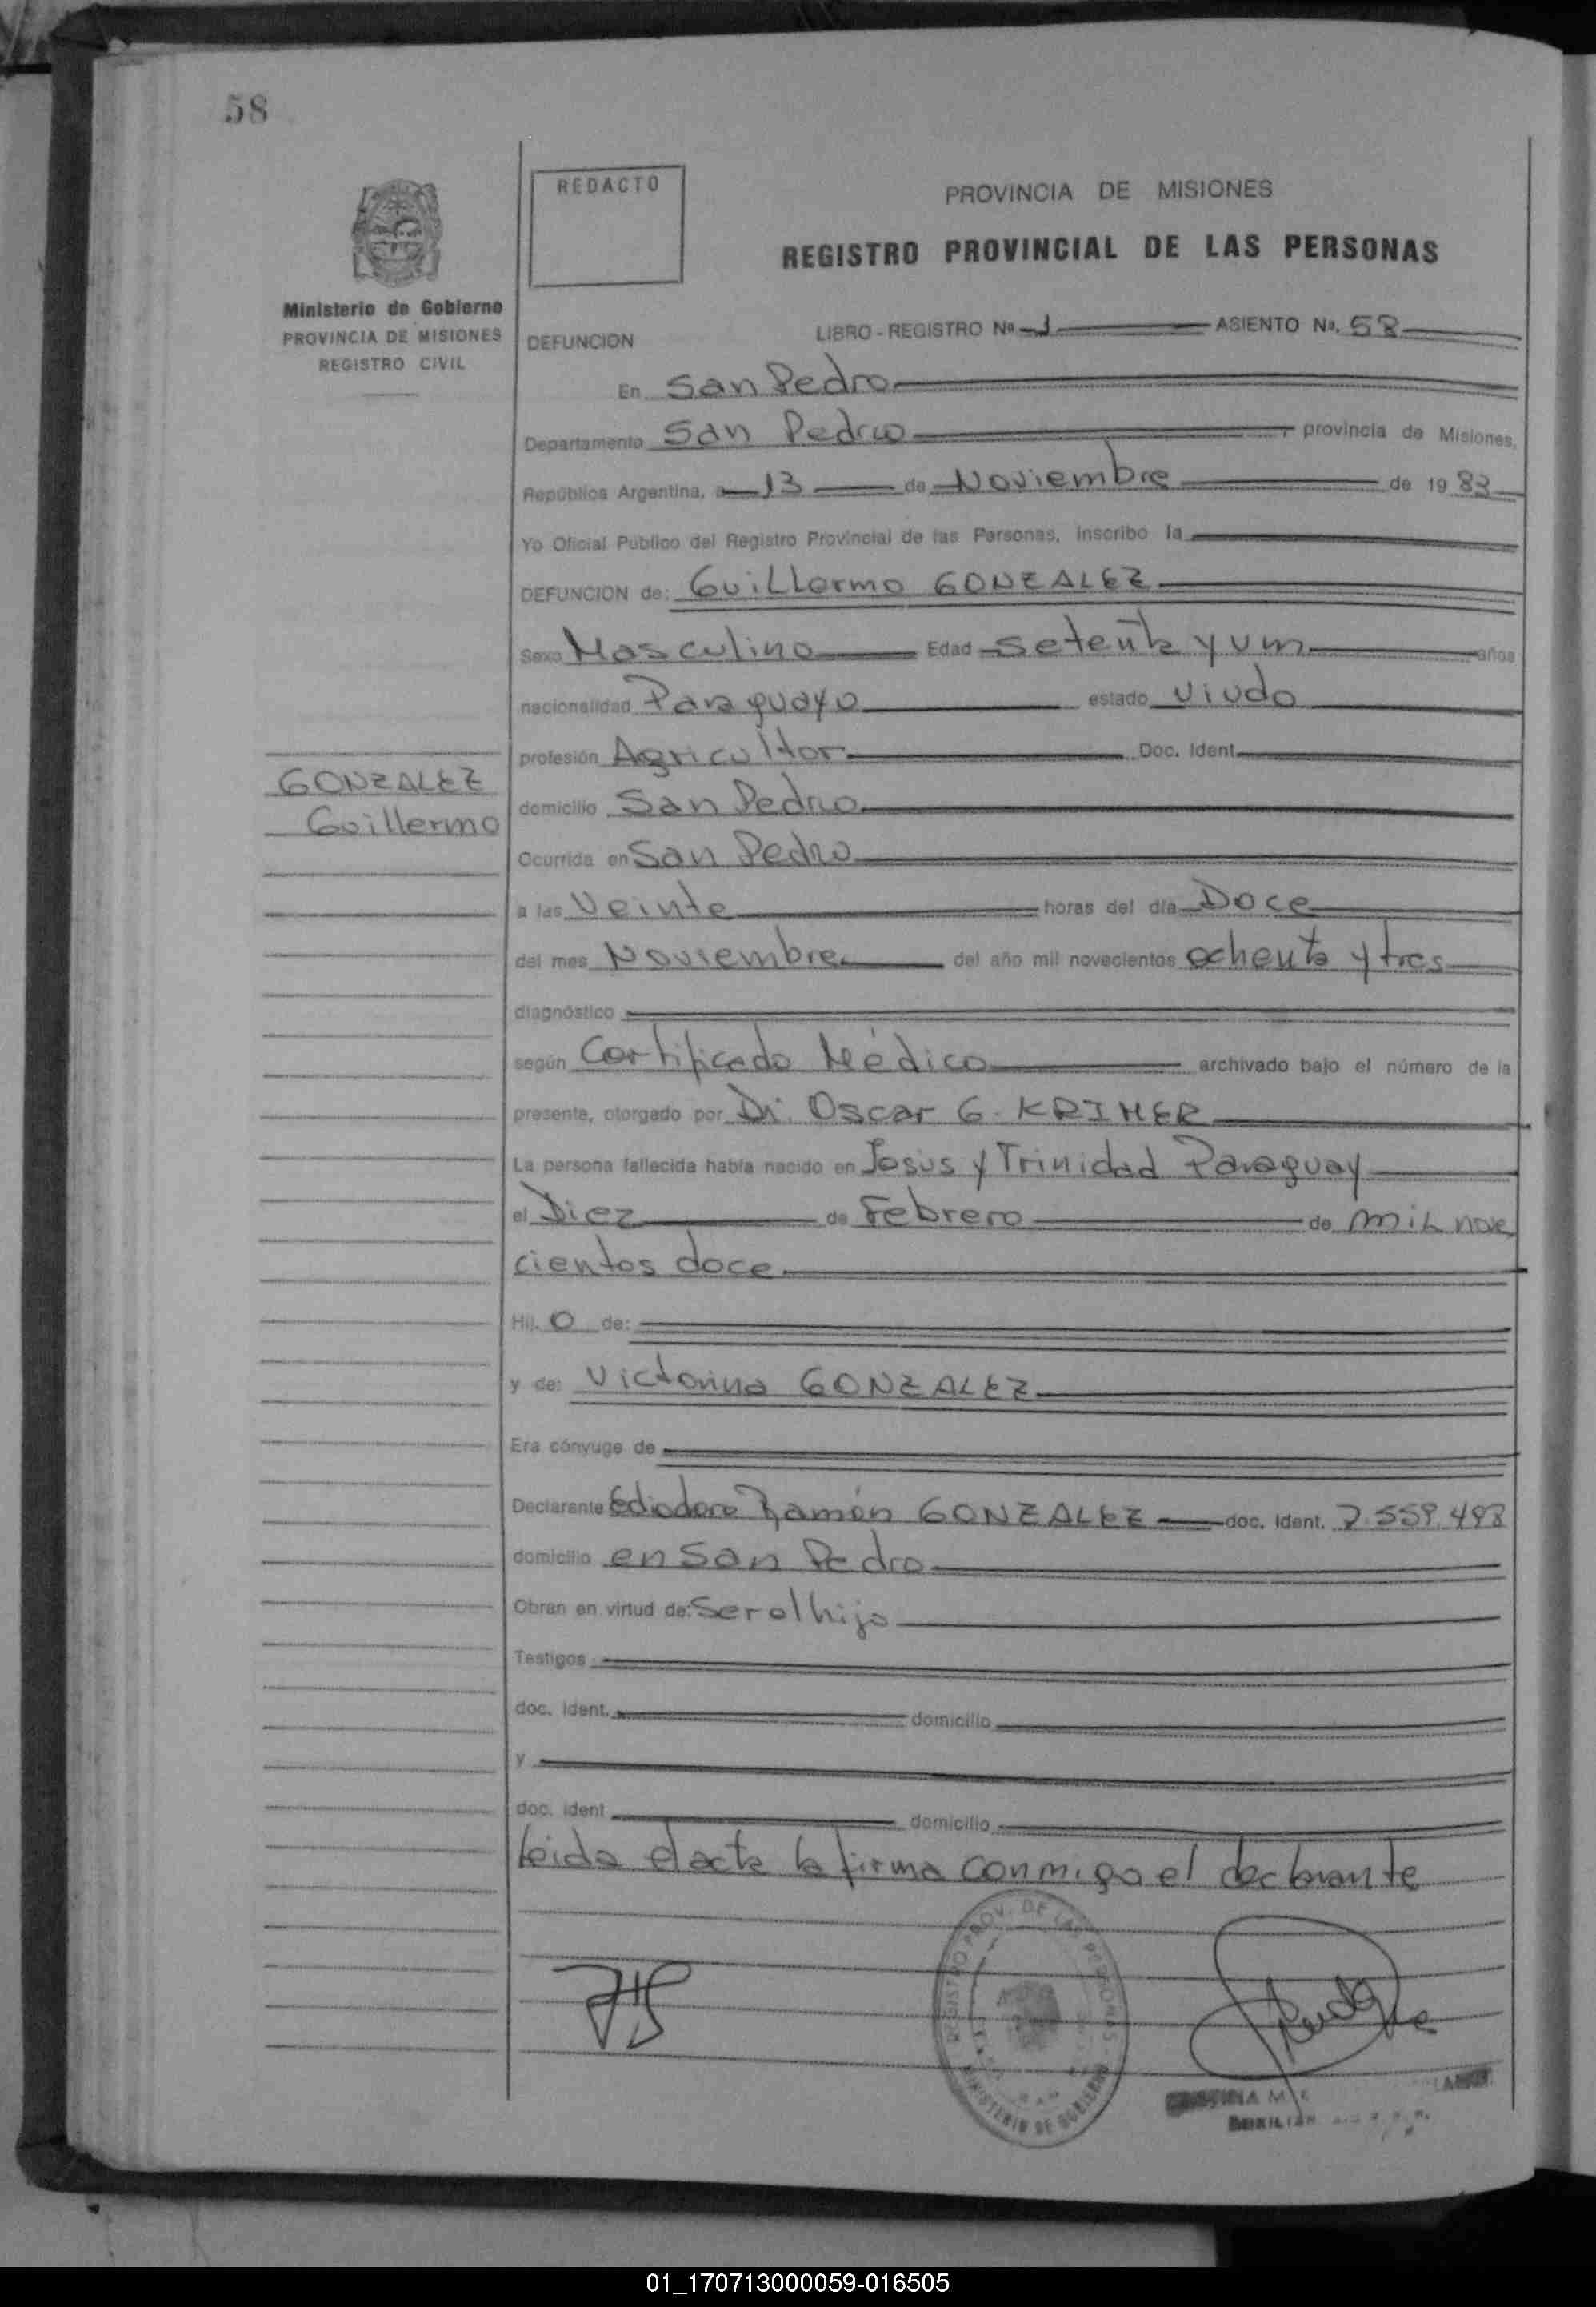 58
REDACTO
PROVINCIA DE MISIONES
REGISTRO PROVINCIAL DE LAS PERSONAS
Ministerio de Gobierno
PROVINCIA DE MISIONES
REGISTRO CIVIL
DEFUNCION LIBRO - REGISTRO Nº 1 ASIENTO Nº. 58
En San Pedro
Departamento San Pedro provincia de Misiones,
República Argentina, a 13 de Noviembre de 19 83
Yo Oficial Público del Registro Provincial de las Personas, inscribo la
DEFUNCION de: Guillermo GONZALEZ
Sexo Masculino Edad setenta y un años
nacionalidad Paraguayo estado Viudo
profesión Agricultor Doc. Ident.
GONZALEZ
Guillermo
domicilio San Pedro
Ocurrida en San Pedro
a las Veinte horas del día Doce
del mes Noviembre del año mil novecientos ochenta y tres
diagnóstico
según Certificado Médico archivado bajo el número de la
presente, otorgado por Dr. Oscar G. KRIMER
La persona fallecida había nacido en Jesús y Trinidad Paraguay
el Diez de Febrero de mil nove
cientos doce
Hij. o de:
y de: Victorina GONZALEZ
Era cónyuge de
Declarante Ediodoro Ramón GONZALEZ doc. Ident. 7.559.498
domicilio en San Pedro
Obran en virtud de: Ser el hijo
Testigos
doc. Ident. domicilio
y
doc. ident domicilio
leida el acta la firma conmigo el declarante
REGISTRO PROV. DE LAS PERSONAS
MINISTERIO DE GOBIERNO
01_170713000059-016505